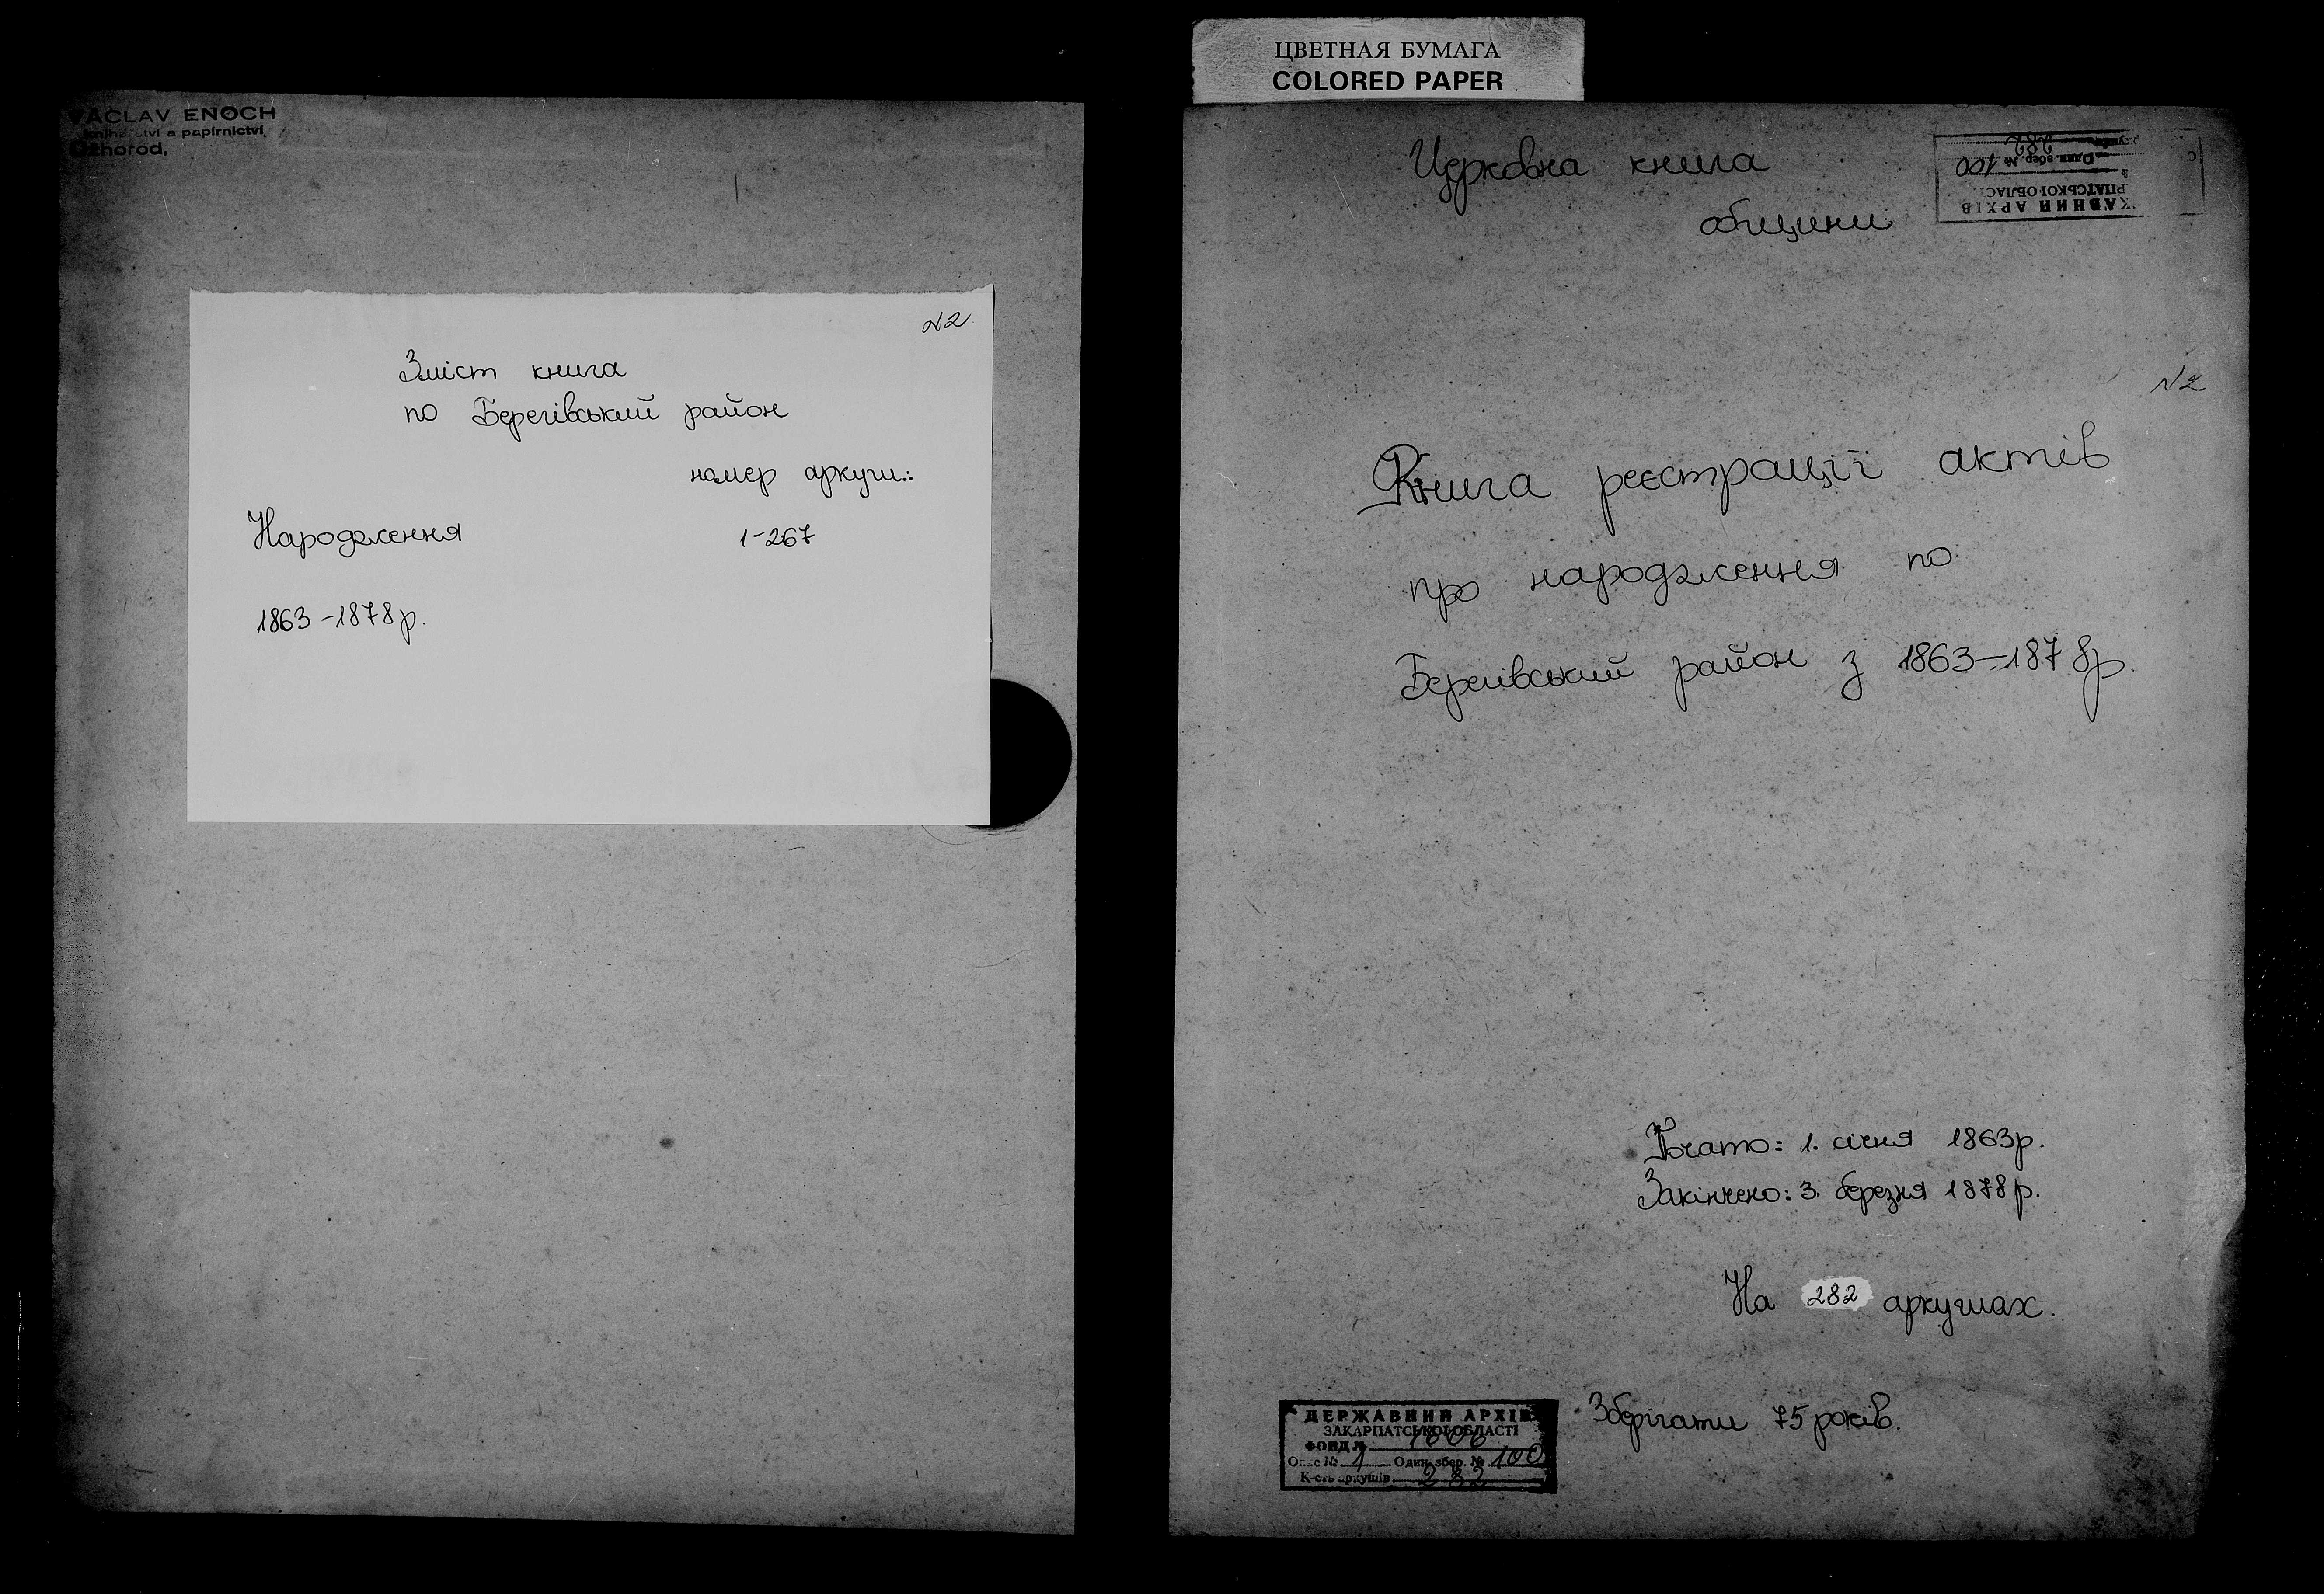 VACLAV ENOCH
knihařství a papírnictví,
Užhorod,
N2
Зміст книга
по Берегівський район
номер аркуш.:
Народження 1-267
1863-1878р.
ЦВЕТНАЯ БУМАГА
COLORED PAPER
Церковна книга
общини
АРХІВ
Один. збер. № 100
282
N2
Книга реєстрації актів
про народження по
Берегівський район з 1863-1878р.
Почато: 1. січня 1863р.
Закінчено: 3. березня 1878р.
На 282 аркушах.
Зберігати 75 років.
ДЕРЖАВНИЙ АРХІВ
ЗАКАРПАТСЬКОЇ ОБЛАСТІ
ФОНД №
Опис № 1 Один. збер. № 100
К-сть аркушів 282